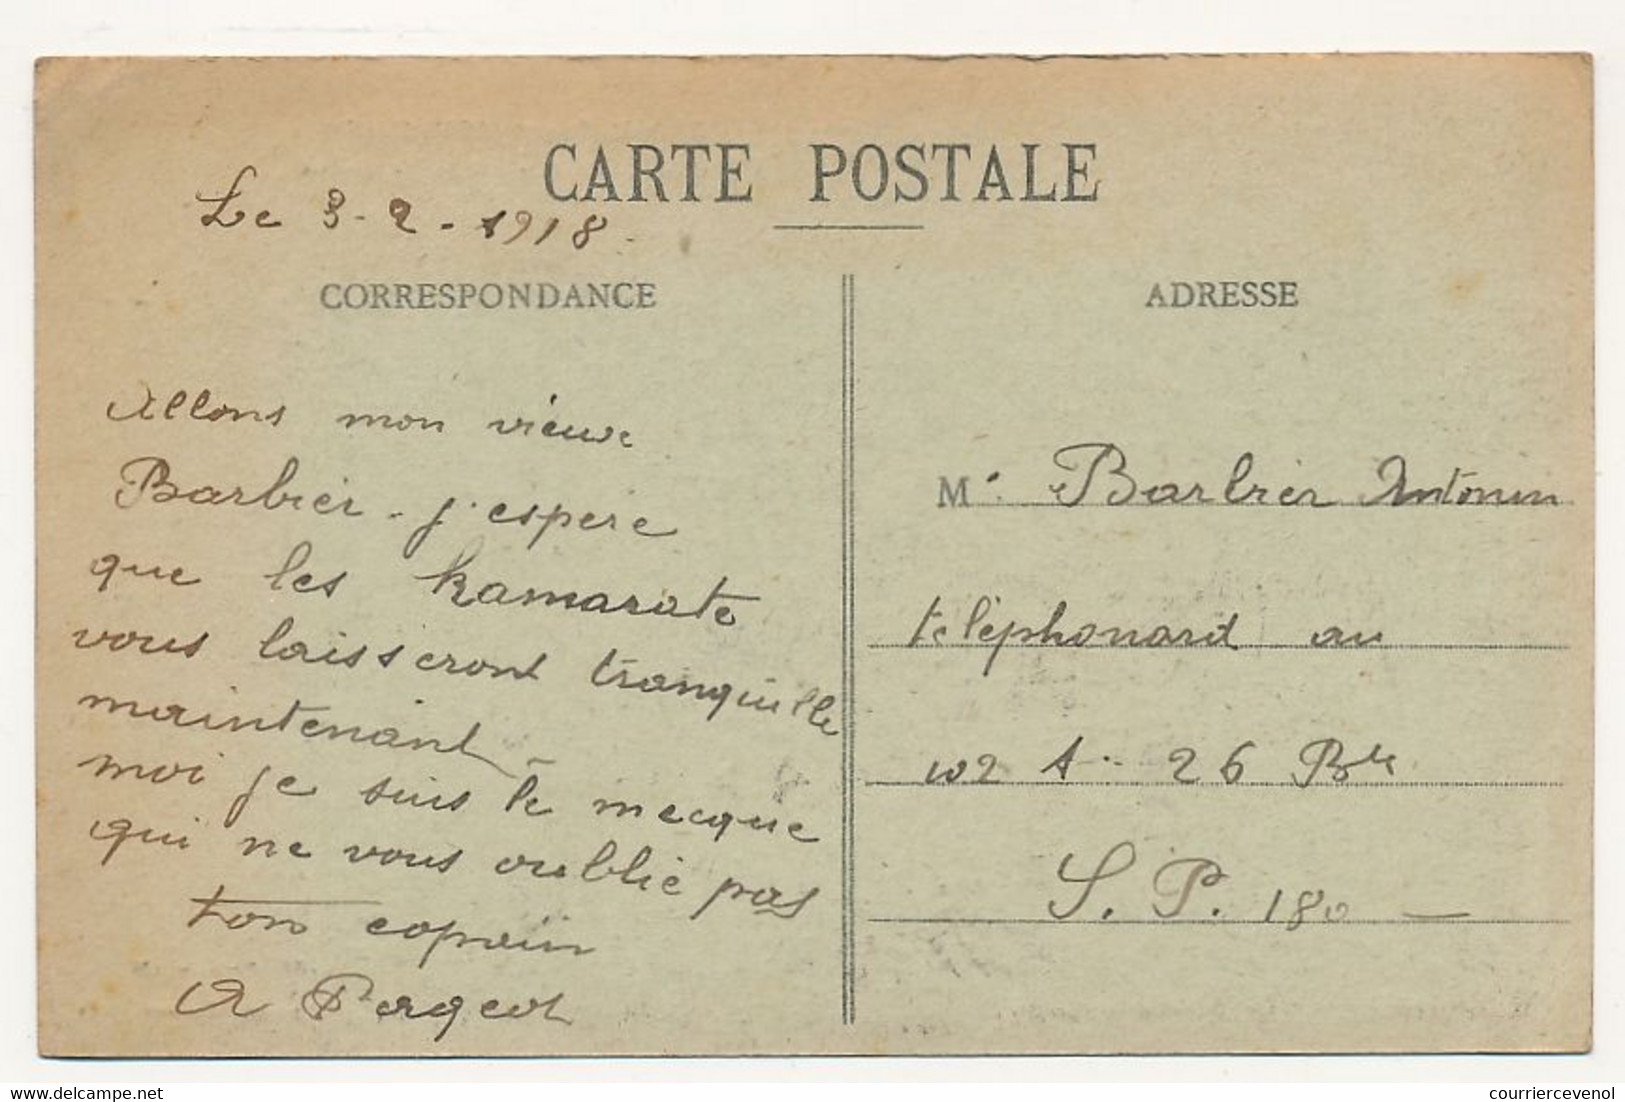 CARTE POSTALE
Le 3-2-1918.
CORRESPONDANCE
Allons mon vieux
Barbier - j'espère
que les Kamarate
vous laisseront tranquille
maintenant -
moi je suis le mecque
qui ne vous oublie pas
ton copain
A Pergeot
ADRESSE
Mr. Barbier Antonin
téléphonard au
102 A.. 26 Bie
S. P. 180 —
courriercevenol